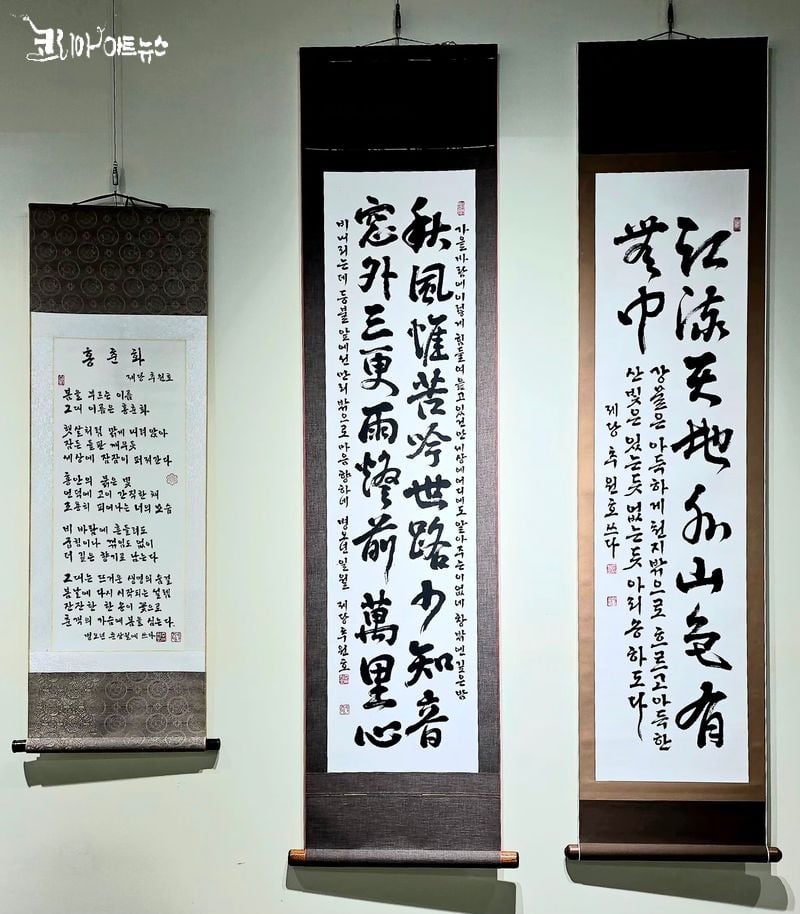 코리아아트뉴스
홍춘화
제당 추원호
봄을 부르는 이름
그대 이름은 홍춘화
햇살처럼 맑게 내려앉아
잠든 들판 깨우듯
세상에 잠잠이 퍼져간다
홍안의 붉은 빛
언덕에 고이 간직한 채
조용히 피어나는 너의 모습
비 바람에 흔들려도
굽힘이나 꺾임도 없이
더 깊은 향기로 남는다
그대는 뜨거운 생명의 숨결
봄날에 다시 시작되는 설렘
잔잔한 한 송이 꽃으로
춘객의 가슴에 봄을 심는다
병오년 춘삼월에 쓰다
가을바람에 이렇게 힘들여 읊고 있건만 세상에 어디에도 알아주는 이 없네 창밖엔 깊은 밤
秋風惟苦吟世路少知音
窓外三更雨燈前萬里心
비 내리는데 등불 앞에선 만리 밖으로 마음 향하네 병오년 일월 제당 추원호
江流天地外山色有
無中
강물은 아득하게 천지밖으로 흐르고 아득한
산빛은 있는듯 없는듯 아리송하도다
제당 추원호 쓰다